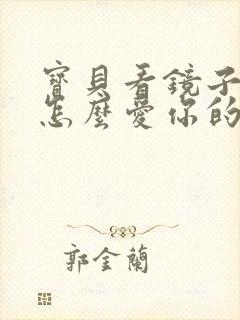 寶貝看鏡子
怎麼愛你的
郭金蘭